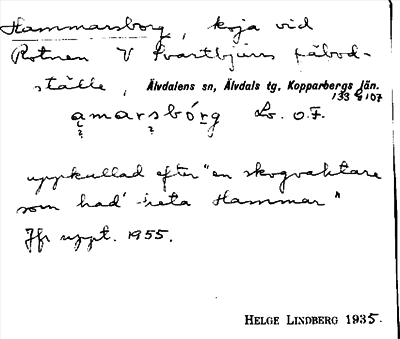 Hammarsborg, koja vid
Rotnen V Svartbjürs fäbod-
ställe, Älvdalens sn, Älvdals tg, Kopparbergs län.
133 & 107
amarsbórg Ls. o. F.
uppkullad efter "en skogvaktare
som had' heta Hammar"
Jfr uppt. 1955.
HELGE LINDBERG 1935.